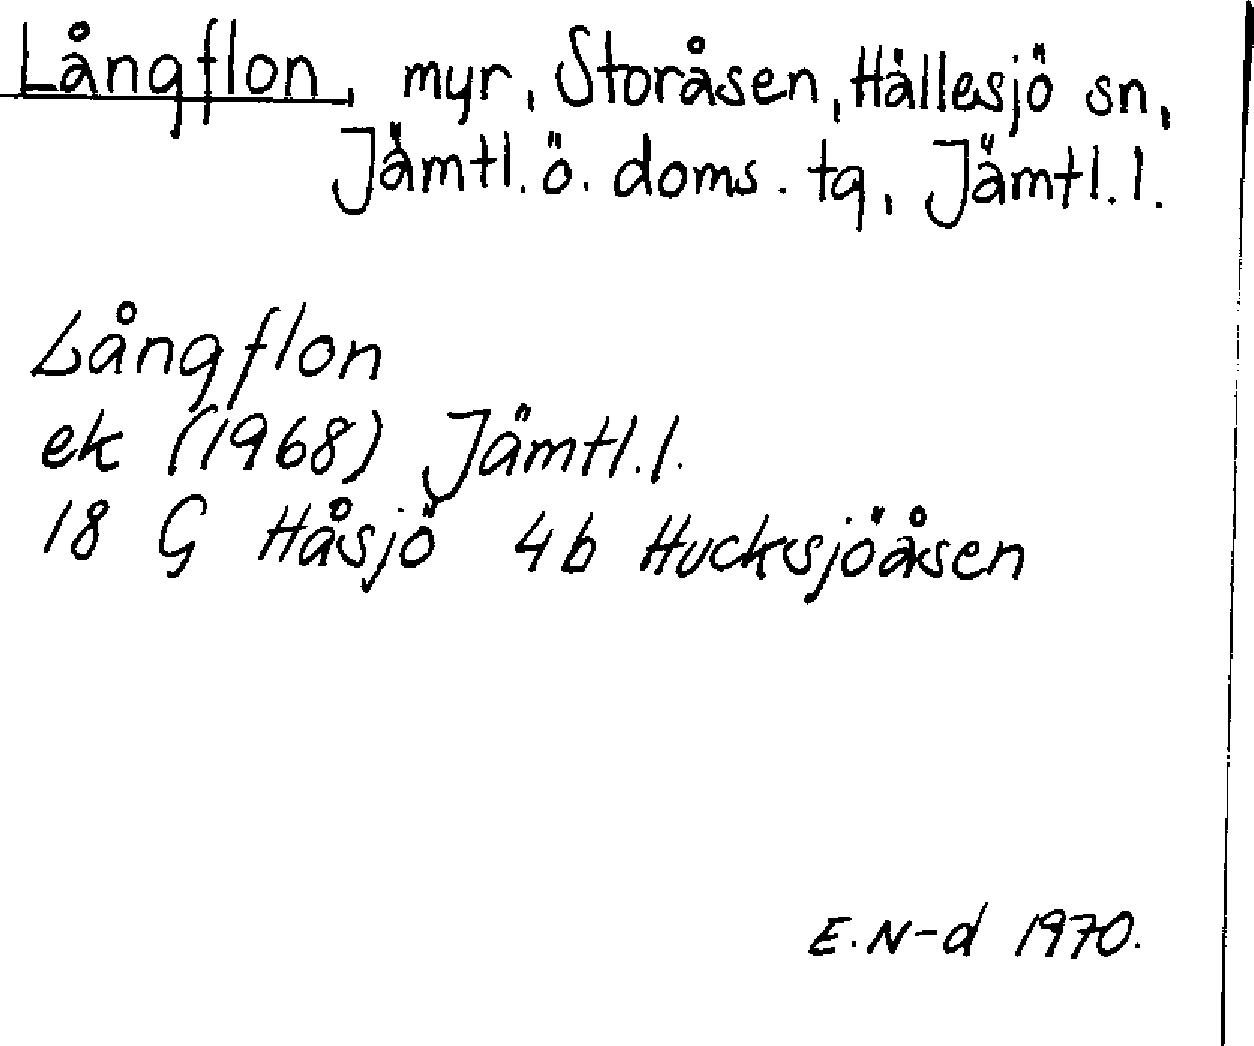 Långflon, myr, Storåsen, Hällesjö sn,
Jämtl. ö. doms. tg, Jämtl. l.
Långflon
ek (1968) Jämtl. l.
18 G Håsjö 4b Hucksjöåsen
E. N-d 1970.